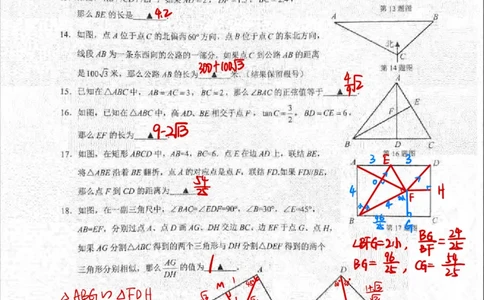 那么 BE 的长是 ▲ 4.2
第13题图
14. 如图，点 A 位于点 C 的北偏西60°方向，点 B 位于点 C 的东北方向，
线段 AB 为一条东西向的公路的一部分，如果点 C 到公路 AB 的距离
是100√3 米，那么公路 AB 的长为 300+100√3 ▲ 米.（结果保留根号）
A B
北
C
第14题图
15. 已知在△ABC中，AB=AC=3，BC=2，那么∠BAC的正弦值等于 ▲ 4/9 √2
16. 如图，已知在△ABC中，高AD、BE相交于点 F，tan C=3/2，BD=CE=6，
那么 EF 的长为 ▲ 9-2√13
A
F E
B D C
第16题图
17. 如图，在矩形 ABCD 中，AB=4，BC=6，点 E 在边 AD 上，联结 BE，
将△ABE沿着 BE 翻折，点 A 的对应点是点 F，联结 FD.如果 FD//BE，
那么点 F 到 CD 的距离为 ▲ 54/25
A 3 E 3 D
4 F H
B G C
96/25
第17题图
18. 如图，在一副三角尺中，∠BAC=∠EDF=90°，∠B=30°，∠E=45°，
AB=EF，分别过点 A、点 D 画 AG、DH 交边 BC、边 EF 于点 G、点 H，
如果 AG 分割△ABC 得到的两个三角形与 DH 分割△DEF 得到的两个
三角形分别相似，那么 AG/DH = 1 ▲ .
BG = 96/25 , CG = 54/25
△ABG∽△FDH
A D